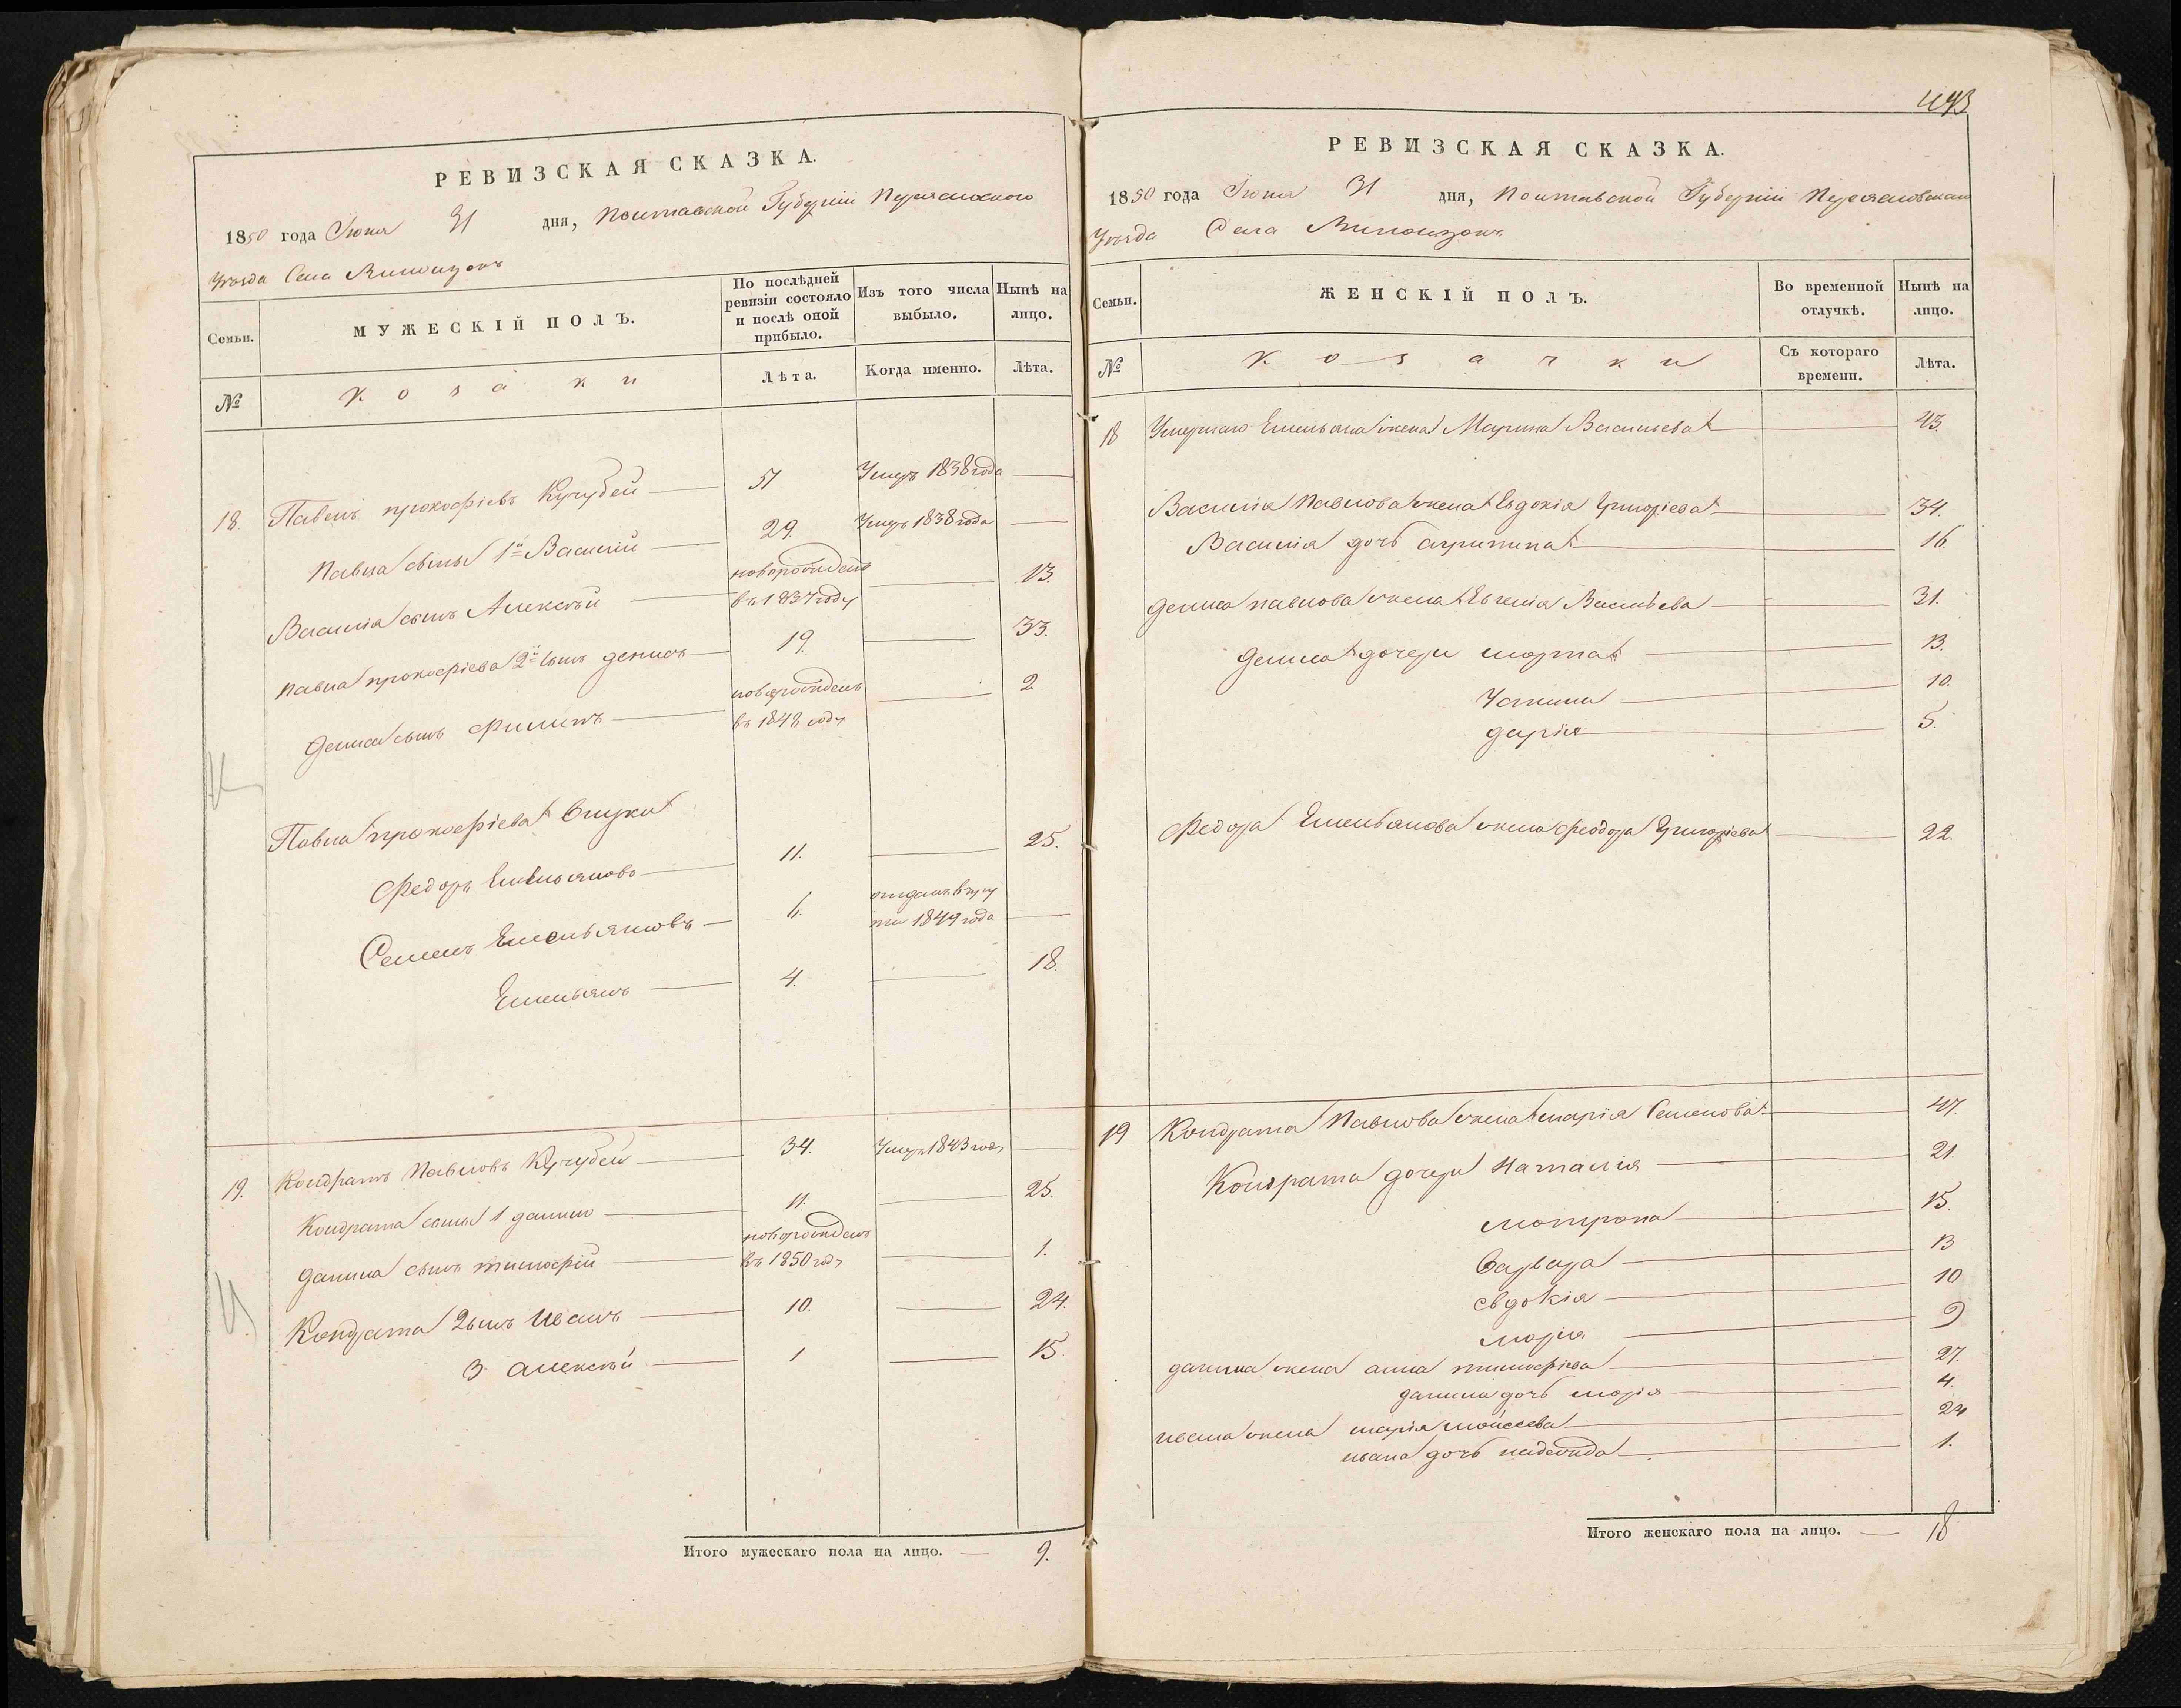 РЕВИЗСКАЯ СКАЗКА.
1850 года Июня 31 дня, Полтавской Губерніи Переясловского
Уѣзда Села
Семьи.
МУЖЕСКІЙ ПОЛЪ.
По послѣдней ревизіи состояло и послѣ оной прибыло.
Изъ того числа выбыло.
Нынѣ на лицо.
№
козаки
Лѣта.
Когда именно.
Лѣта.
18. Павелъ прокофіевъ Кучубей 51 Умеръ 1838 года
Павла сыны 1й Василій 29. Умеръ 1838 года
Василія сынъ Алексѣй новорожденъ въ 1837 году 13.
Павла прокофіева 2й сынъ денисъ 19. 33.
дениса сынъ Филипъ новорожденъ въ 1848 году 2
Павла прокофіева внуки
Федоръ Емельяновъ 11. 25.
Семенъ Емельяновъ 6. отданъ въ рекруты 1849 года
Емельянъ 4. 18.
19. Кондратъ Павловъ Кучубей 34. Умеръ 1843 года
Кондрата сыны 1 данило 11. 25.
данила сынъ тимофій новорожденъ въ 1850 году 1.
Кондрата 2 сынъ Иванъ 10. 24.
3. алексѣй 1 15.
Итого мужескаго пола на лицо. 9.
443
РЕВИЗСКАЯ СКАЗКА.
1850 года Июня 31 дня, Полтавской Губерніи Переясловскаго
Уѣзда Села
Семьи.
ЖЕНСКІЙ ПОЛЪ.
Во временной отлучкѣ.
Нынѣ на лицо.
№
козачки
Съ котораго времени.
Лѣта.
18 Умершаго Емельяна жена Марина Васильева 43.
Василія Павлова жена Евдокія Григоріева 34.
Василія дочь агрипина 16.
дениса павлова жена Евгенія Васильева 31.
дениса дочери марта 13.
Устина 10.
дарія 5.
Федора Емельянова жена феодора Григоріева 22.
19 Кондрата Павлова жена марія Семенова 47.
Кондрата дочери Наталія 21.
мотрона 15.
Варвара 13
евдокія 10
марія 9
данила жена анна тимофіева 27.
данила дочь марія 4.
ивана жена марія моисеева 24
ивана дочь надежда 1.
Итого женскаго пола на лицо. 18